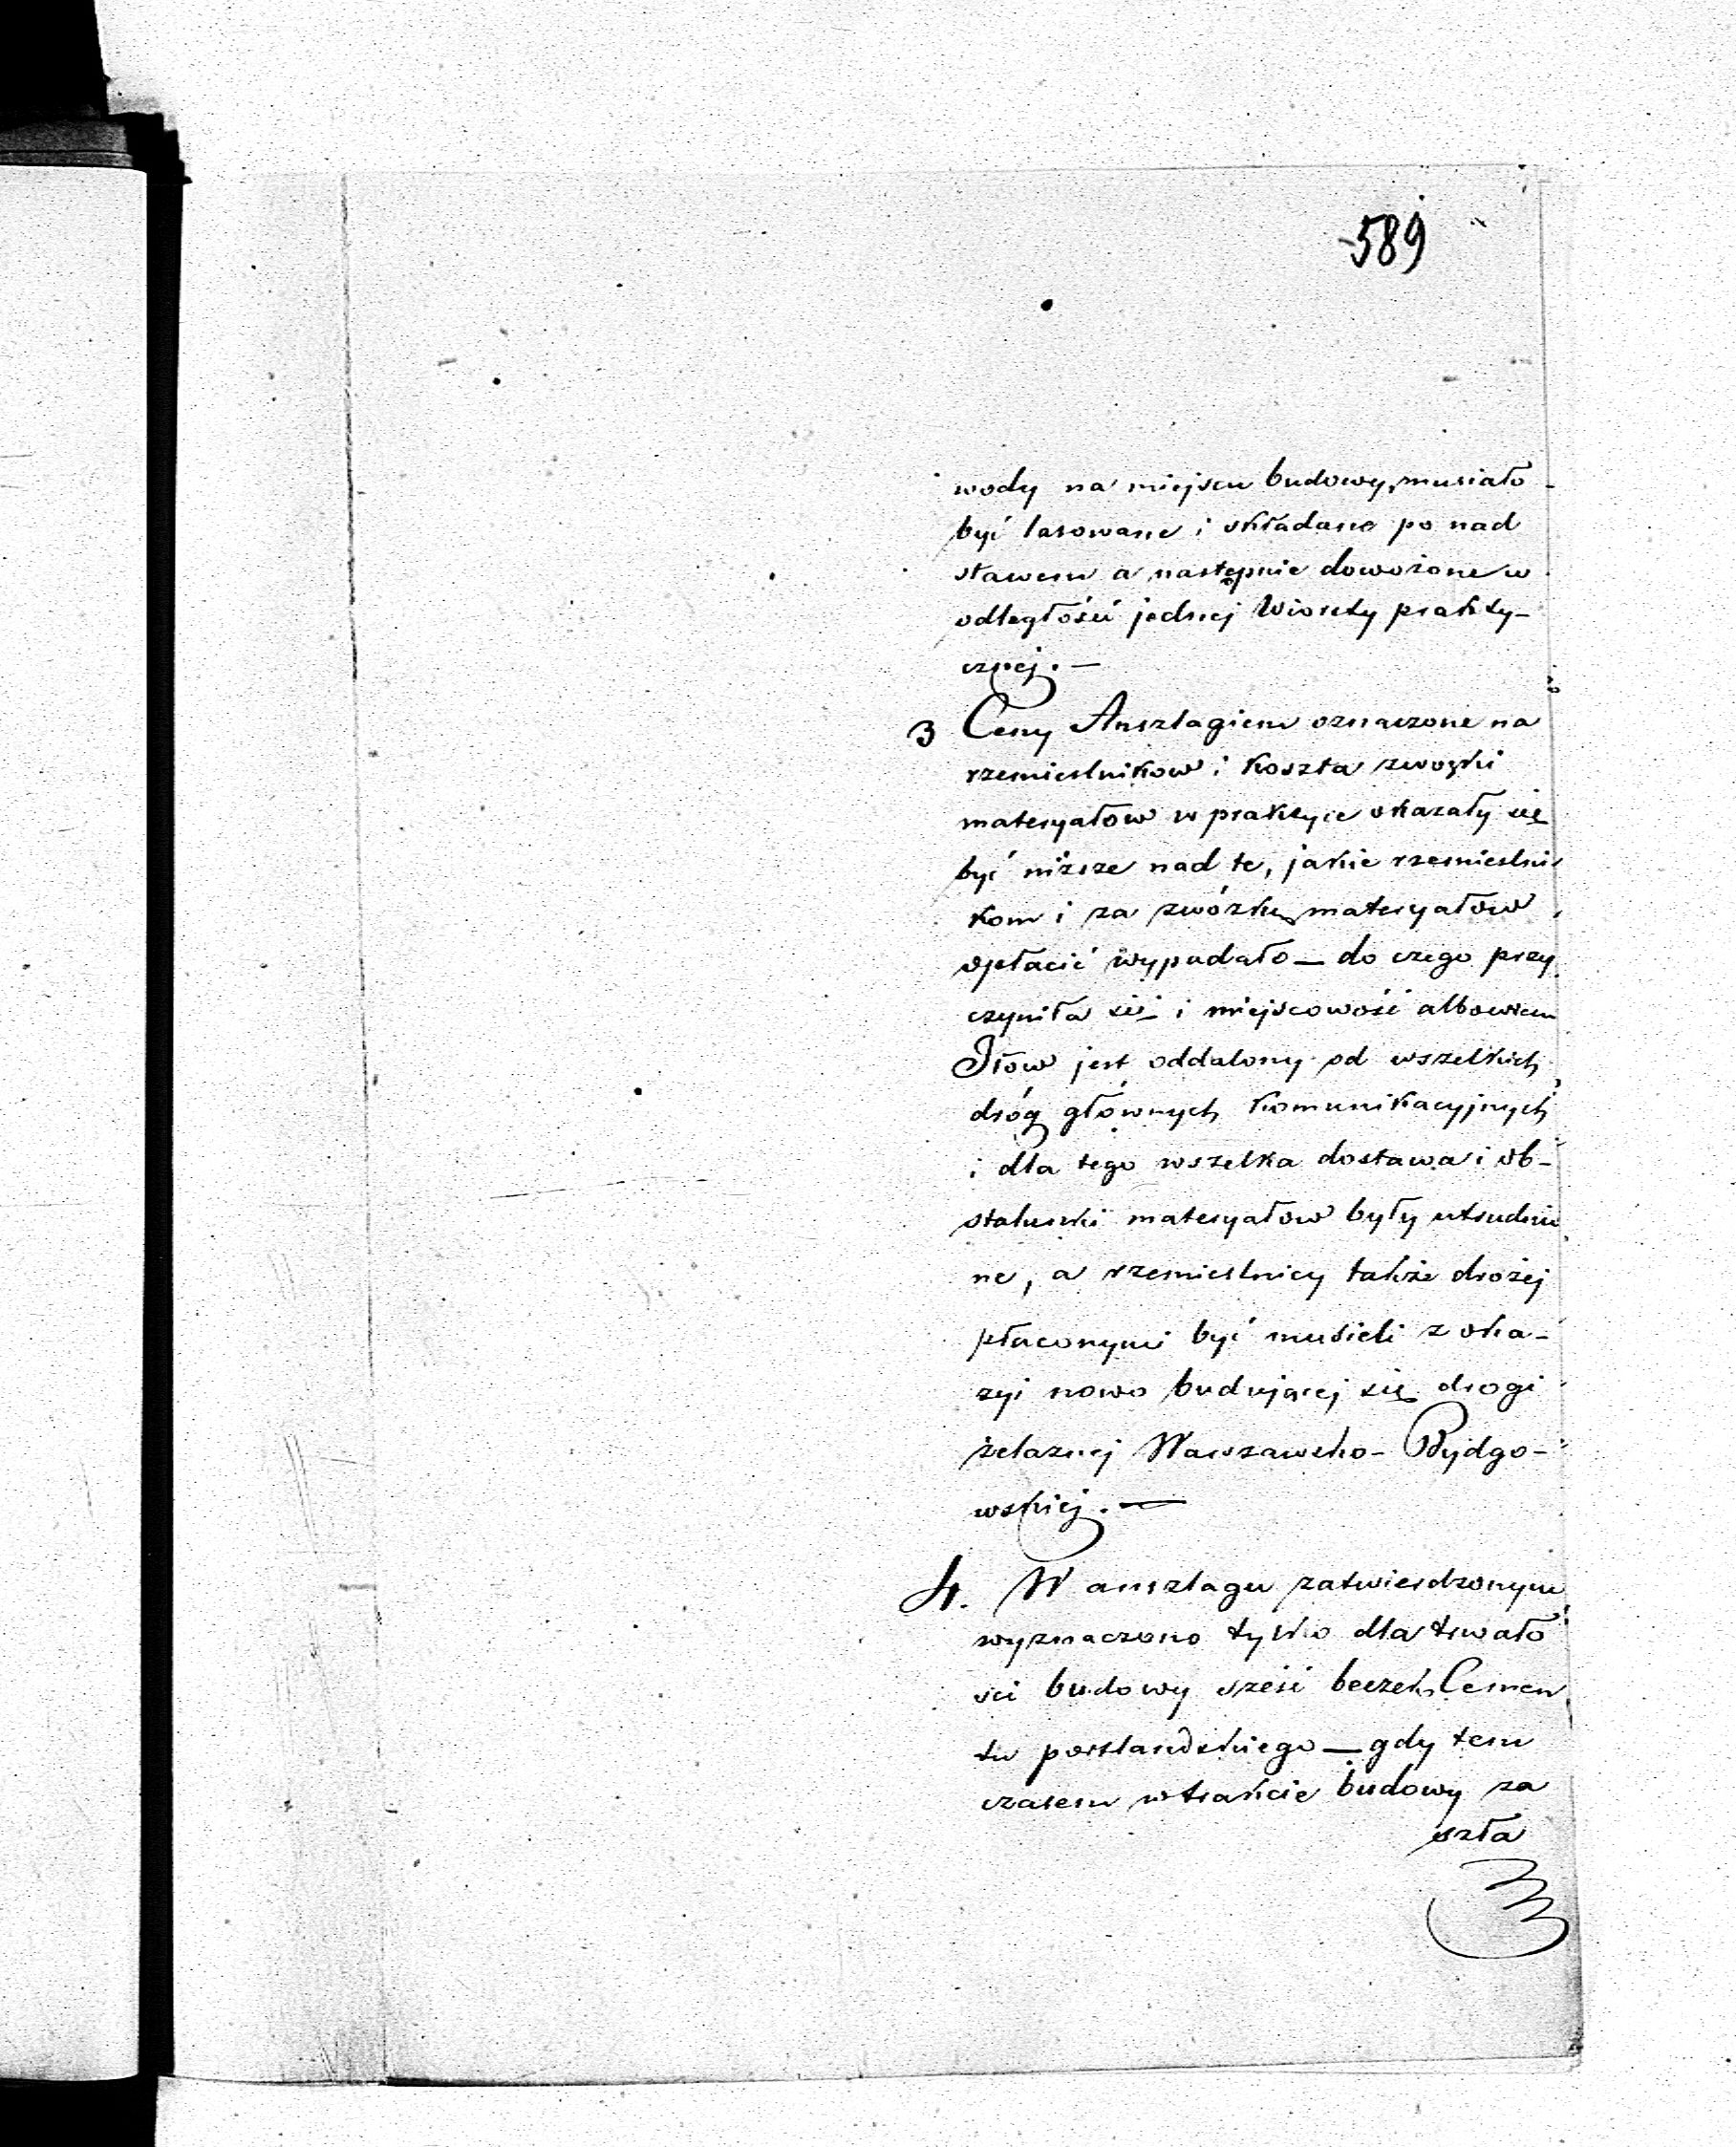 589
wody na miejscu budowy, musiało
być lasowane i składane po nad
stawem a następnie dowożone w
odległości jednej Wiorsty prakty-
cznej. —
3 Ceny Anszlagiem oznaczone na
rzemieslnikow i koszta zwozki
materyałow w praktyce okazały się
być niższe nad te, jakie rzemieslni
kom i za zwózkę materyałow
opłacić wypadało — do czego przy
czyniła się i miejscowość albowiem
Iłow jest oddalony od wszelkich
dróg głównych komunikacyjnych
i dla tego wszelka dostawa i ob-
stalunki materyałow były utrudnio
ne, a rzemieslnicy także drożej
płaconymi być musieli z oka-
zyi nowo budującej się drogi
żelaznej Warszawsko - Bydgo-
wskiej. —
4. W anszlagu zatwierdzonym
wyznaczono tylko dla trwało
sci budowy sześć beczek Cemen
tu portlandskiego — gdy tem
czasem w trakcie budowy za
szła